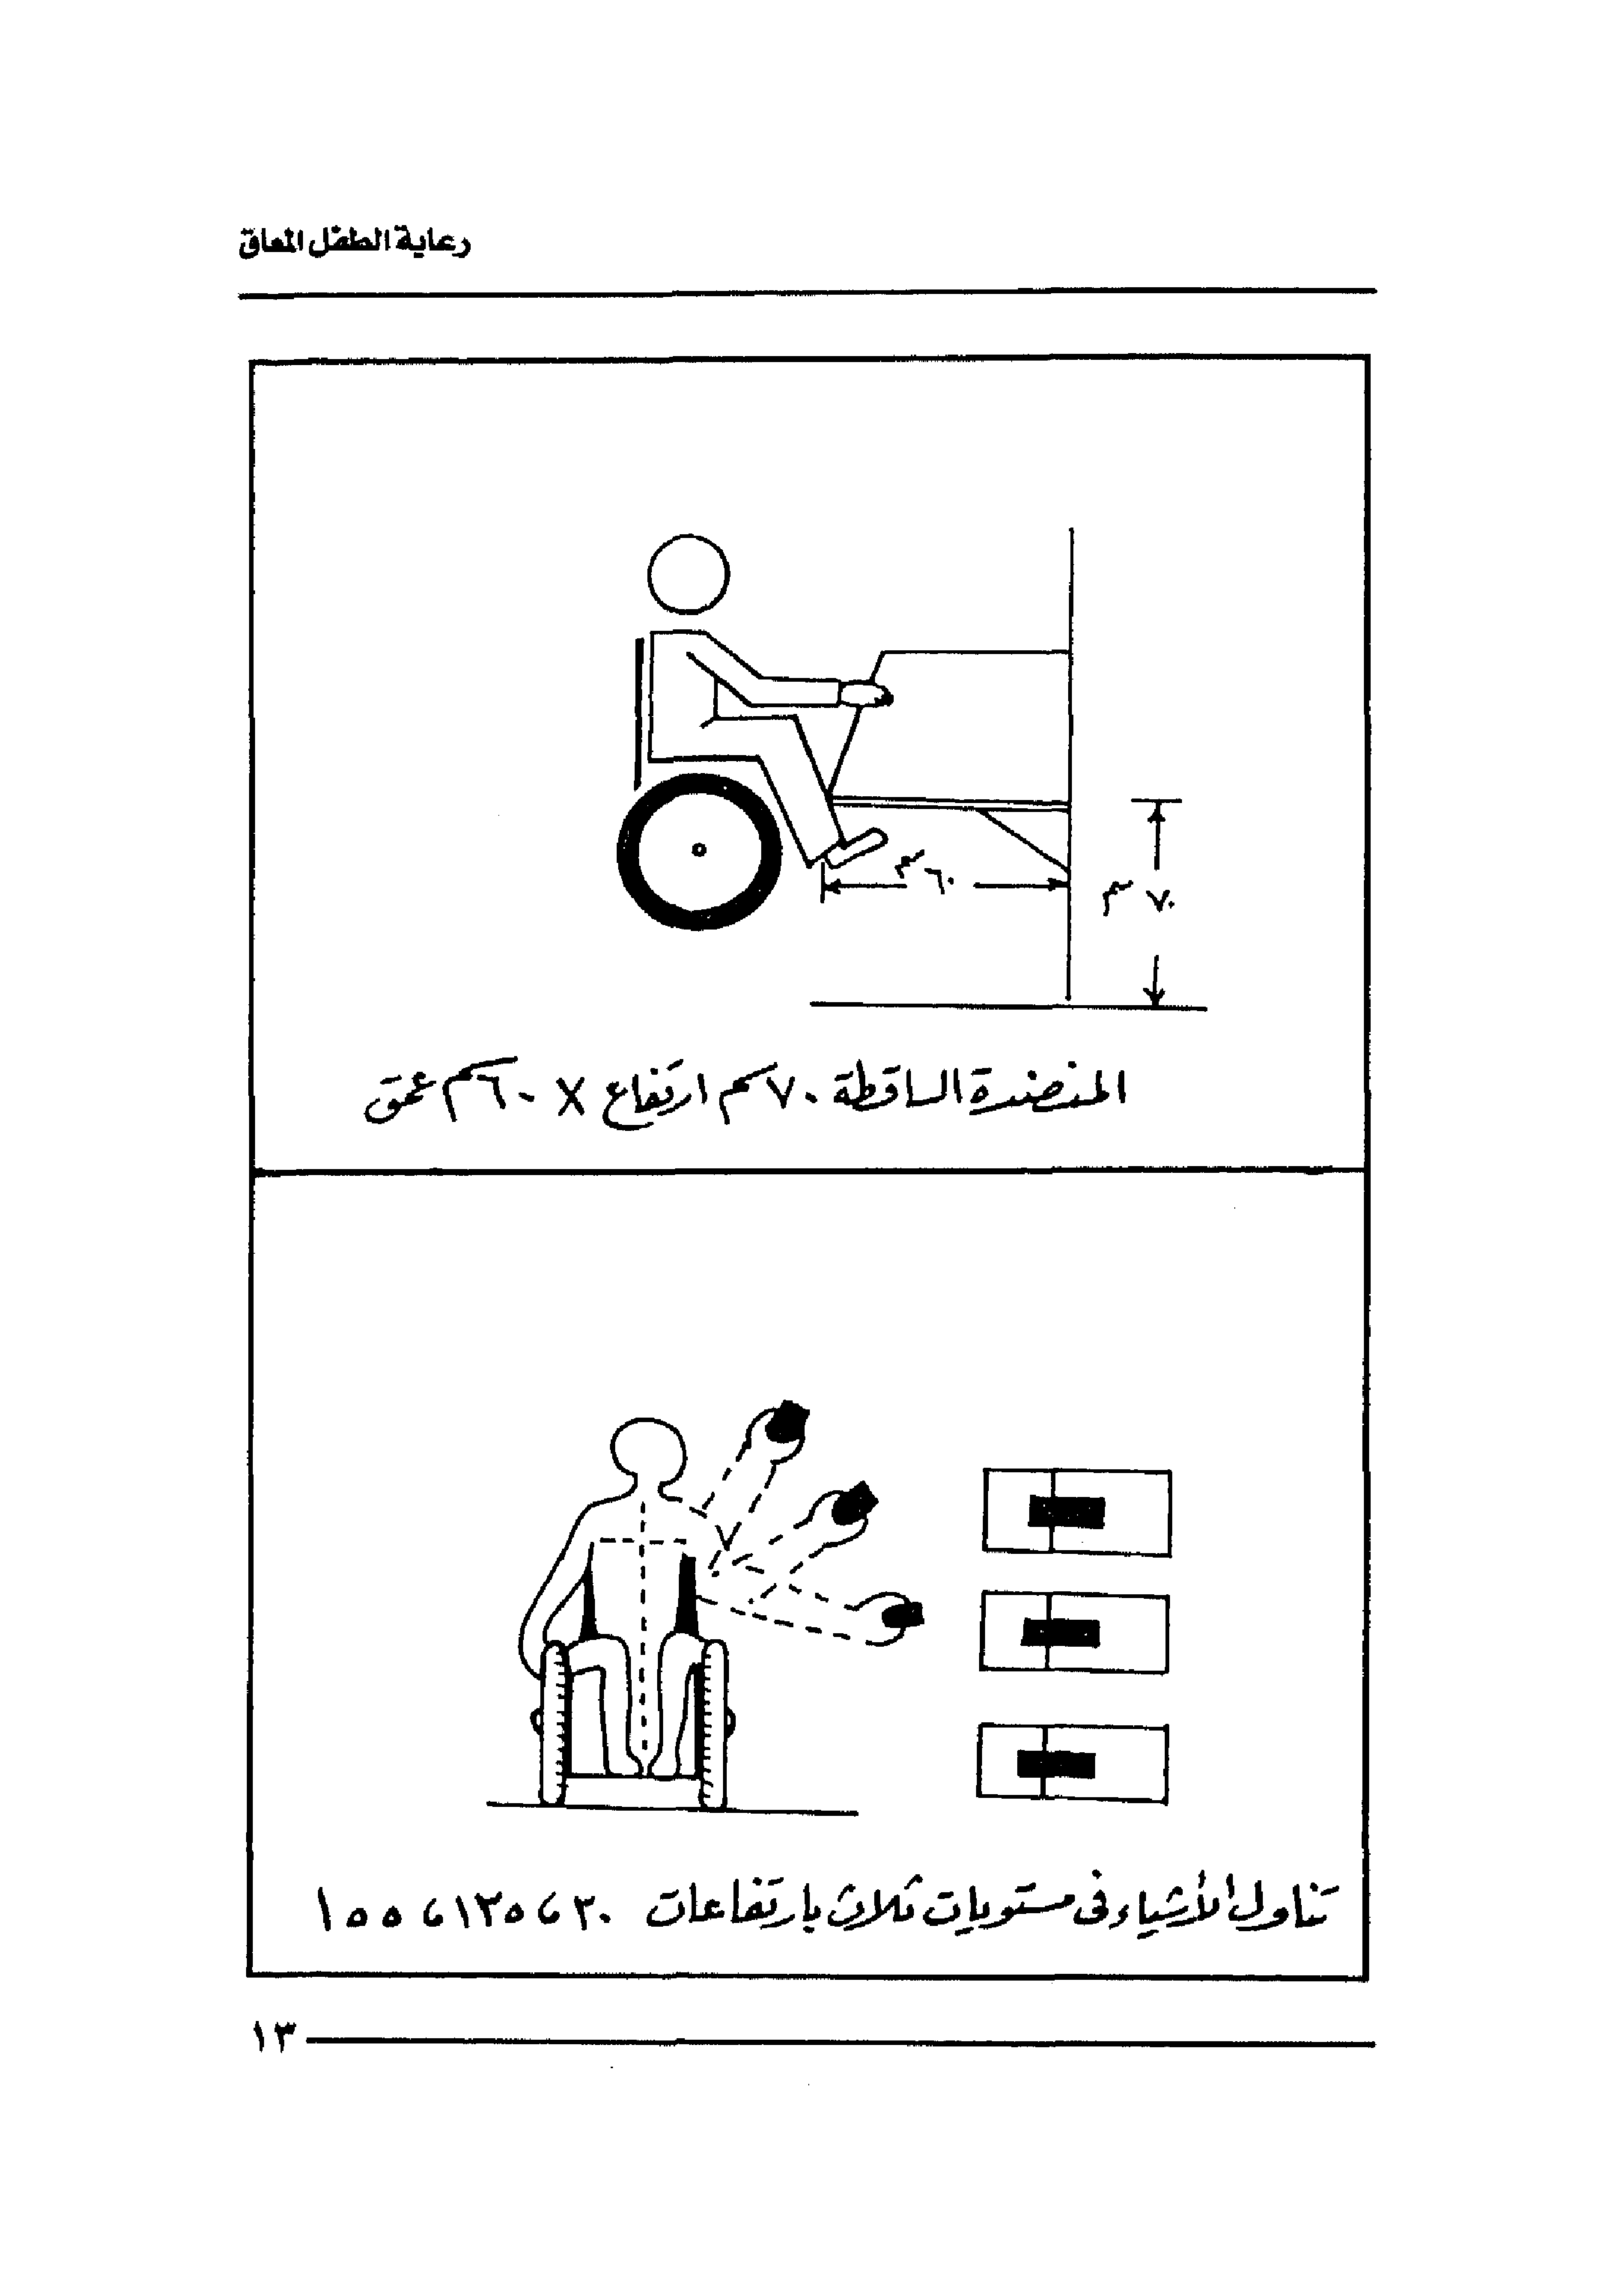 رعاية الطفل المعاق
٦٠ سم
٧٠ سم
المنضدة الساقطة ٧٠ سم ارتفاع × ٦٠ سم عمق
تناول الأشياء فى مستويات ثلاث بارتفاعات ٣٠، ١٣٥، ١٥٥
١٣